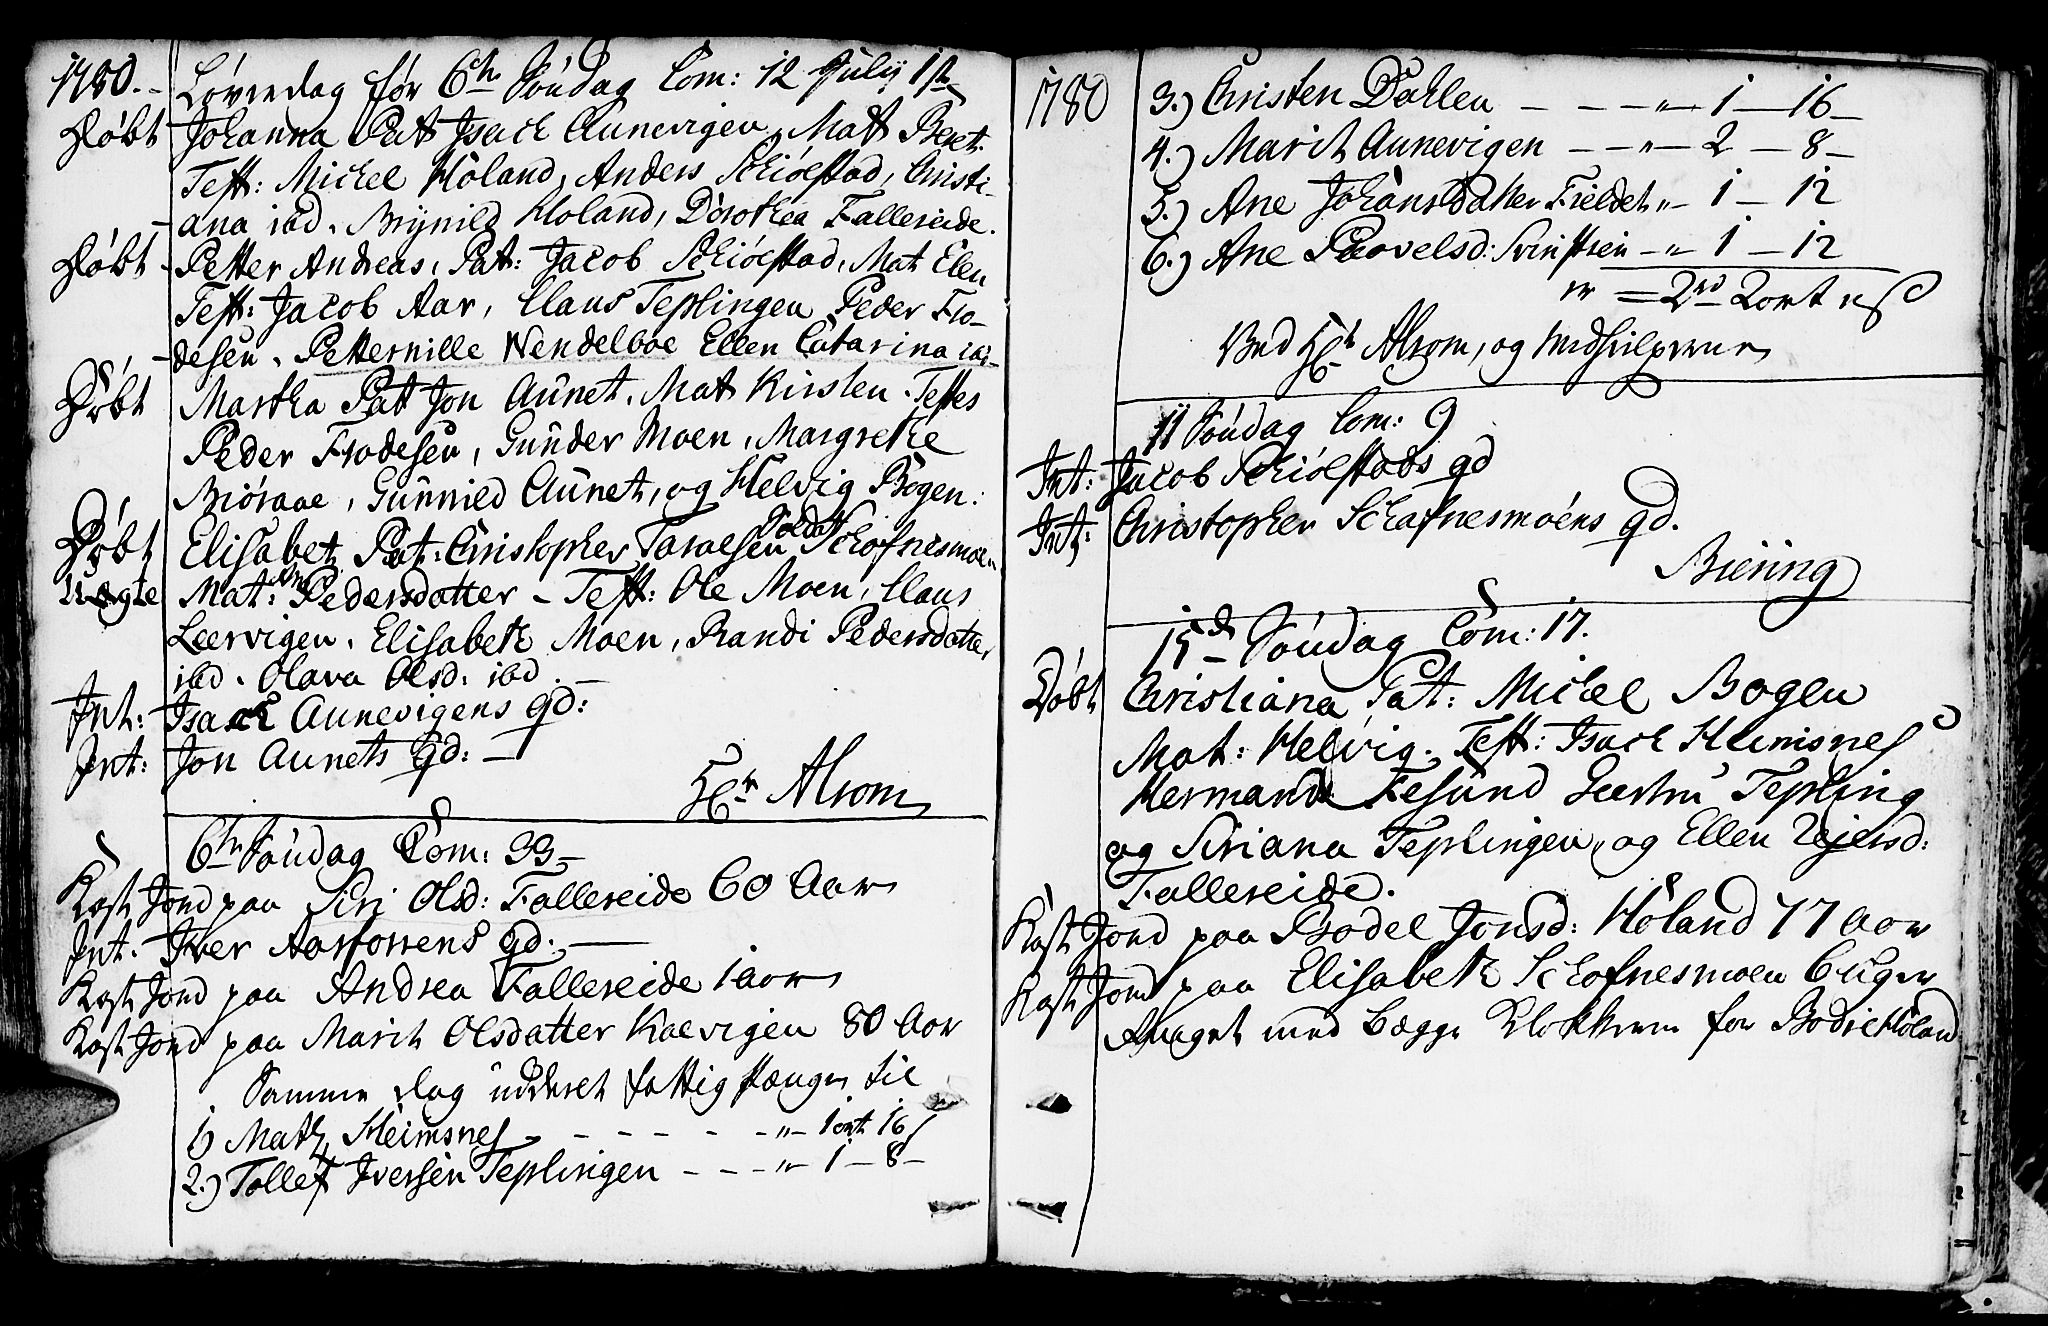 1780. Løverdag før 6te Søndag Com: 12 July 1st
Døbt Johanna Pat Isach Aunevigen, Matt Beret.
Test: Michel Høland, Anders Schiølstad, Christi-
ana ibd. Brynild Høland, Dorothea Fallereide.
Døbt Petter Andreas, Pat: Jacob Schiølstad, Mat Elen
Test: Jacob Aar, Claus Teplingen Peder Fro-
desen. Petternille Wendelboe Ellen Catarina ibd.
Døbt Martha Pat Jon Aunet. Mat Kirsten. Testes
Peder Frodesen, Gunder Moen, Margrethe
Biøraae, Gunnild Aunet, og Helvig Bogen:
Døbt Elisabet Pat: Christopher Taraldsen Soldat Schofnesmoen
Uægte Mat: Ane Pedersdatter - Test: Ole Moen, Claus
Leervigen, Elisabeth Moen, Randi Pedersdatter
ibd. Olava Olsd: ibd.
Int: Isach Aunevigens qd:
Int: Jon Aunets qd:
Hr Alrom
6te Søndag Com: 33
Kast Jord paa Siri Olsd: Fallereide 60 Aar
Int: Iver Aartorrens qd.
Kast Jord paa Andrea Fallereide 1 aar
Kast Jord paa Marit Olsdatter Kaevigen 80 Aar
Samme dag uddelet fattig penge til
1) Matz Heimsnes - - - - - „ - 1 ort 16 s
2.) Tollef Iversen Teplingen - - - „ - 1 - 8 -
1780 3.) Christen Dahlen - - - „ - 1 - 16 -
4.) Marit Aunevigen - - „ - 2 - 8 -
5.) Ane Johansdatter Fieldet „ - 1 - 12
6.) Ane Paavelsd: Svinsteen - „ 1 - 12
er = 2rd 2 ort 8 s
Ved Hr Alrom, og Medhielpere
11 Søndag Com: 9
Int: Jacob Schiølstads qd
Int: Christopher Schafnesmoens qd.
Biering
15de Søndag Com: 17.
Døbt Christiana Pat: Michel Bogen
Mat: Helvig. Test: Isach Heimsnes
Hermand Fesund Geertru Tepling
og Siriana Teplingen, og Ellen Zejersd:
Fallereide.
Kast Jord paa Bodel Jonsd: Høland 77 aar
Kast Jord paa Elisabeth Schofnesmoen 6 uger
med begge Klokkerne for Bodil Høland